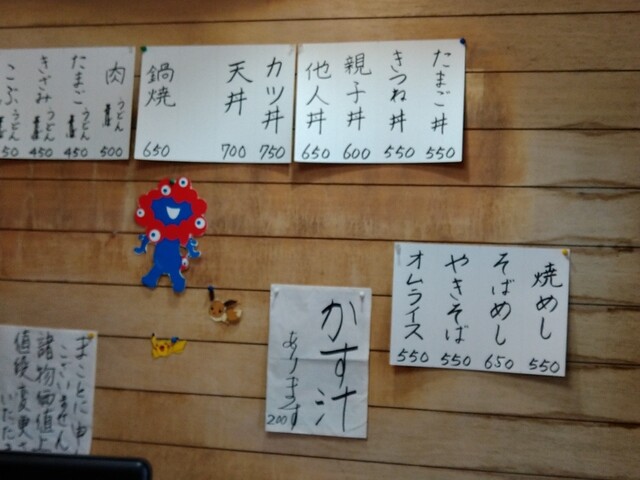 肉うどん 500
たまごうどん 450
きざみうどん 450
こぶうどん 50
カツ丼 750
天丼 700
鍋焼 650
たまご丼 550
きつね丼 550
親子丼 600
他人丼 650
焼めし 550
そばめし 650
やきそば 550
オムライス 550
かす汁
あります
200
まことに申
ございません
諸物価値上
値段変更
いたた